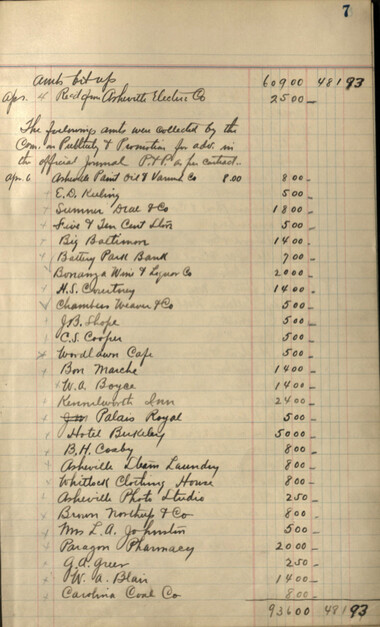 7
Amts bt up 609 00 481 93
Apr. 4 Rec'd from Asheville Electric Co 25 00
The following amts were collected by the
Com. on Publicity & Promotion for adv. in
the official Journal P.&P. as per contract
Apr. 6 Asheville Paint Oil & Varnish Co 8.00 8 00
E.D. 5 00
Sumner & Co 18 00
Five & Ten Cent Store 5 00
Big Baltimore 14 00
Battery Park Bank 7 00
Bonanza Wine & Liquor Co 20 00
H.S. Courtney 14 00
Chambers Weaver & Co 5 00
J.B. Shope 5 00
C.S. Cooper 5 00
Woodlawn Cafe 5 00
Bon Marche 14 00
W.A. Boyce 14 00
Kennilworth Inn 24 00
Palais Royal 5 00
Hotel Berkeley 50 00
B.H. Cosby 8 00
Asheville Steam Laundry 8 00
Whitlock Clothing House 8 00
Asheville Photo Studio 2 50
Brown Northup & Co 8 00
Mrs L.A. Johnston 5 00
Paragon Pharmacy 20 00
G.A. Greer 2 50
W.A. Blair 14 00
Carolina Coal Co 8 00
936 00 481 93